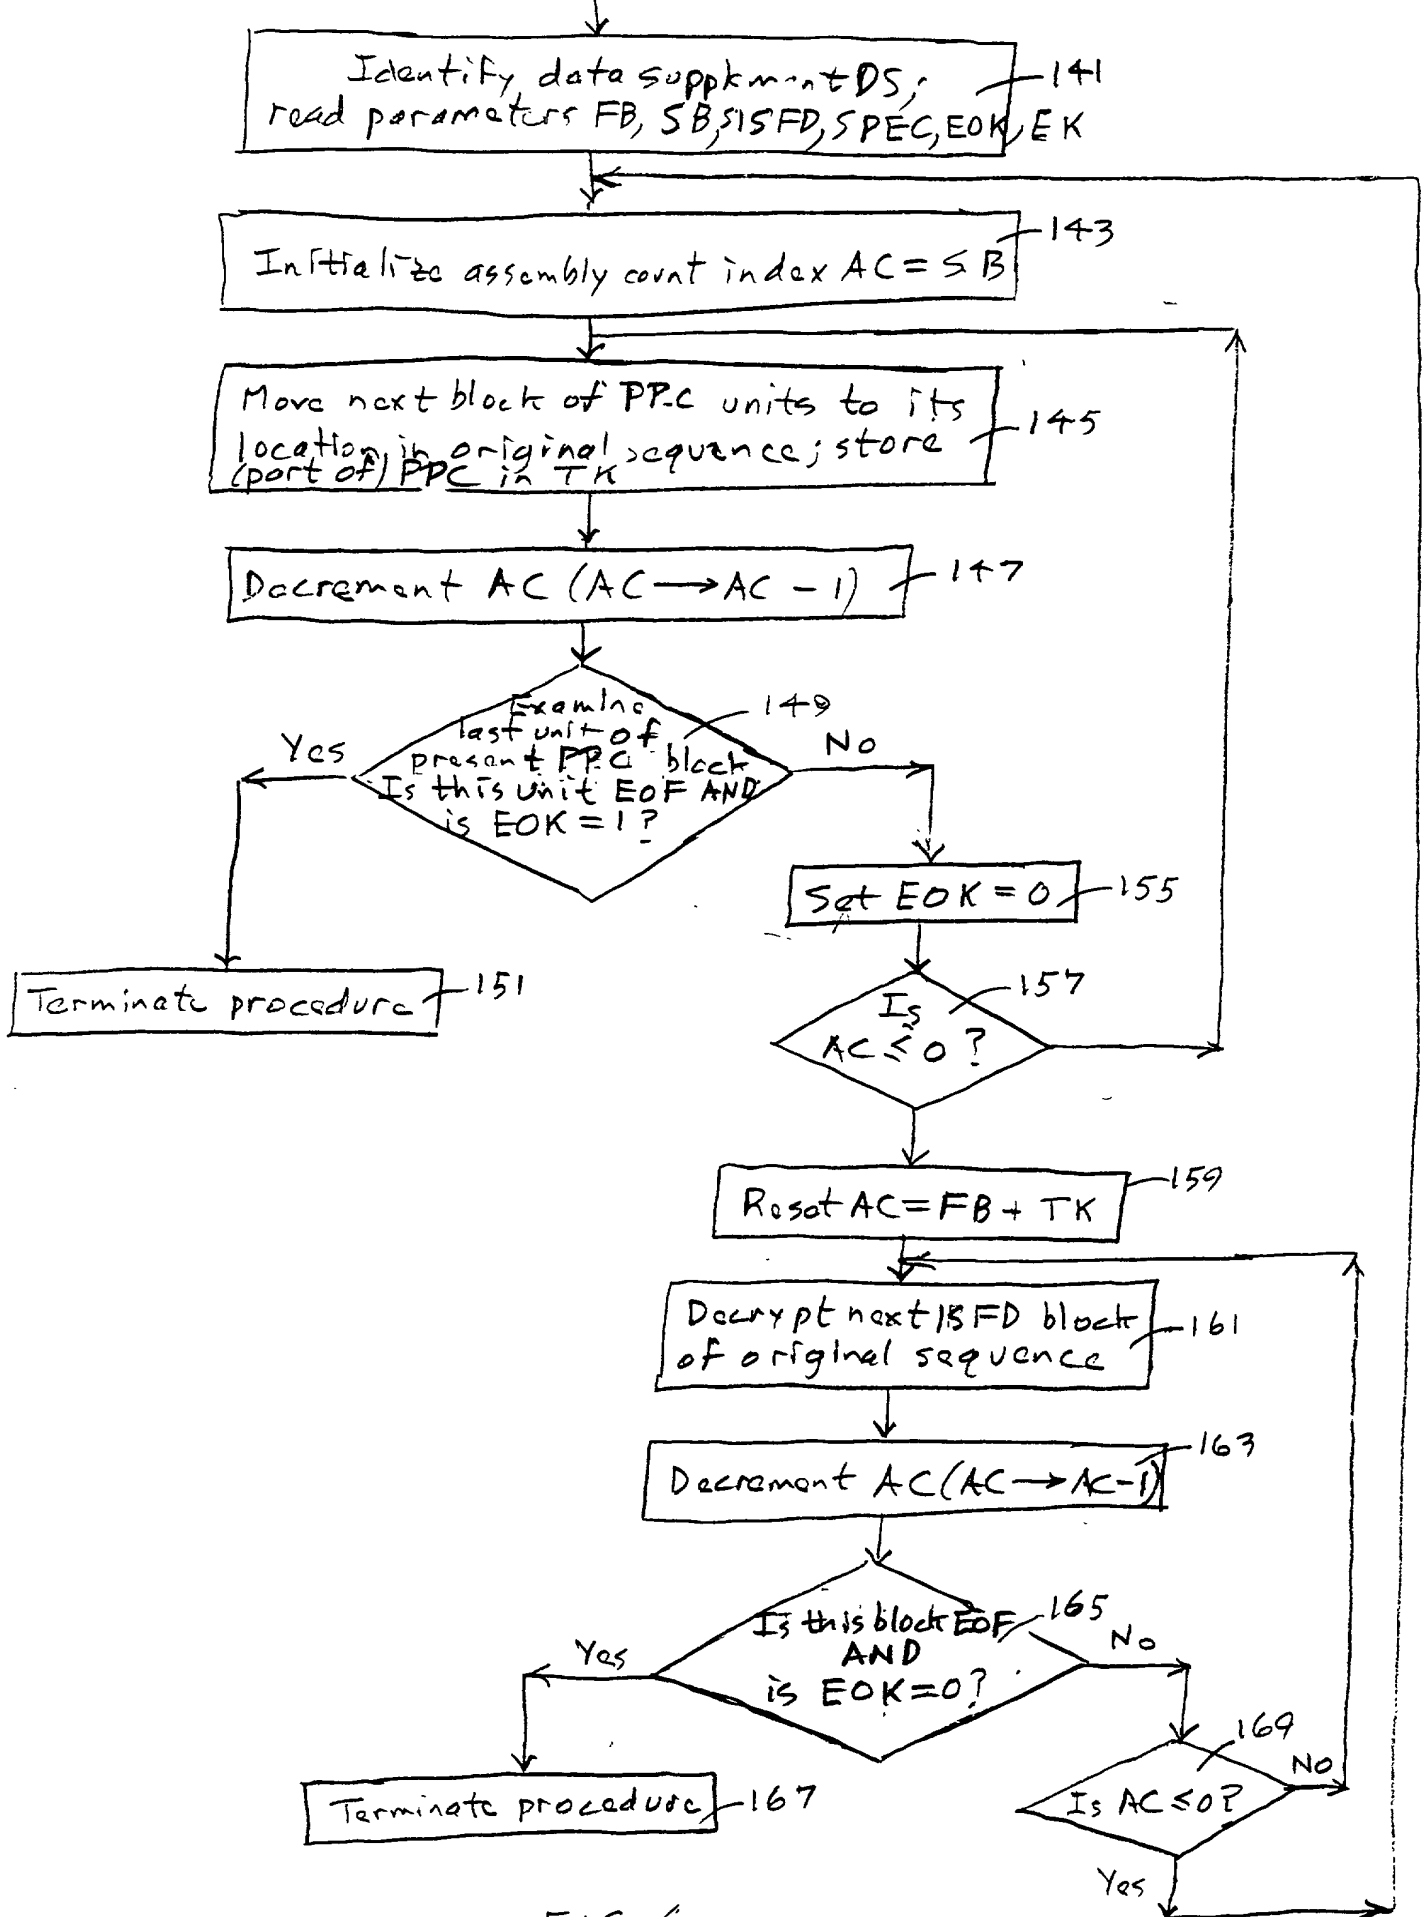 Identify data supplement DS;
141
read parameters FB, SB, SISFD, SPEC, EOK, EK
143
Initialize assembly count index AC = SB
Move next block of PPC units to its
145
location in original sequence; store
(part of) PPC in TK
Decrement AC (AC → AC - 1)
147
Examine
149
last unit of
present PPC block
Is this unit EOF AND
is EOK = 1?
Yes
No
Set EOK = 0
155
Terminate procedure
151
Is
157
AC ≤ 0?
159
Reset AC = FB + TK
Decrypt next ISFD block
161
of original sequence
163
Decrement AC (AC → AC-1)
Is this block EOF
165
AND
is EOK=0?
Yes
No
169
Is AC ≤ 0?
No
Terminate procedure
167
Yes